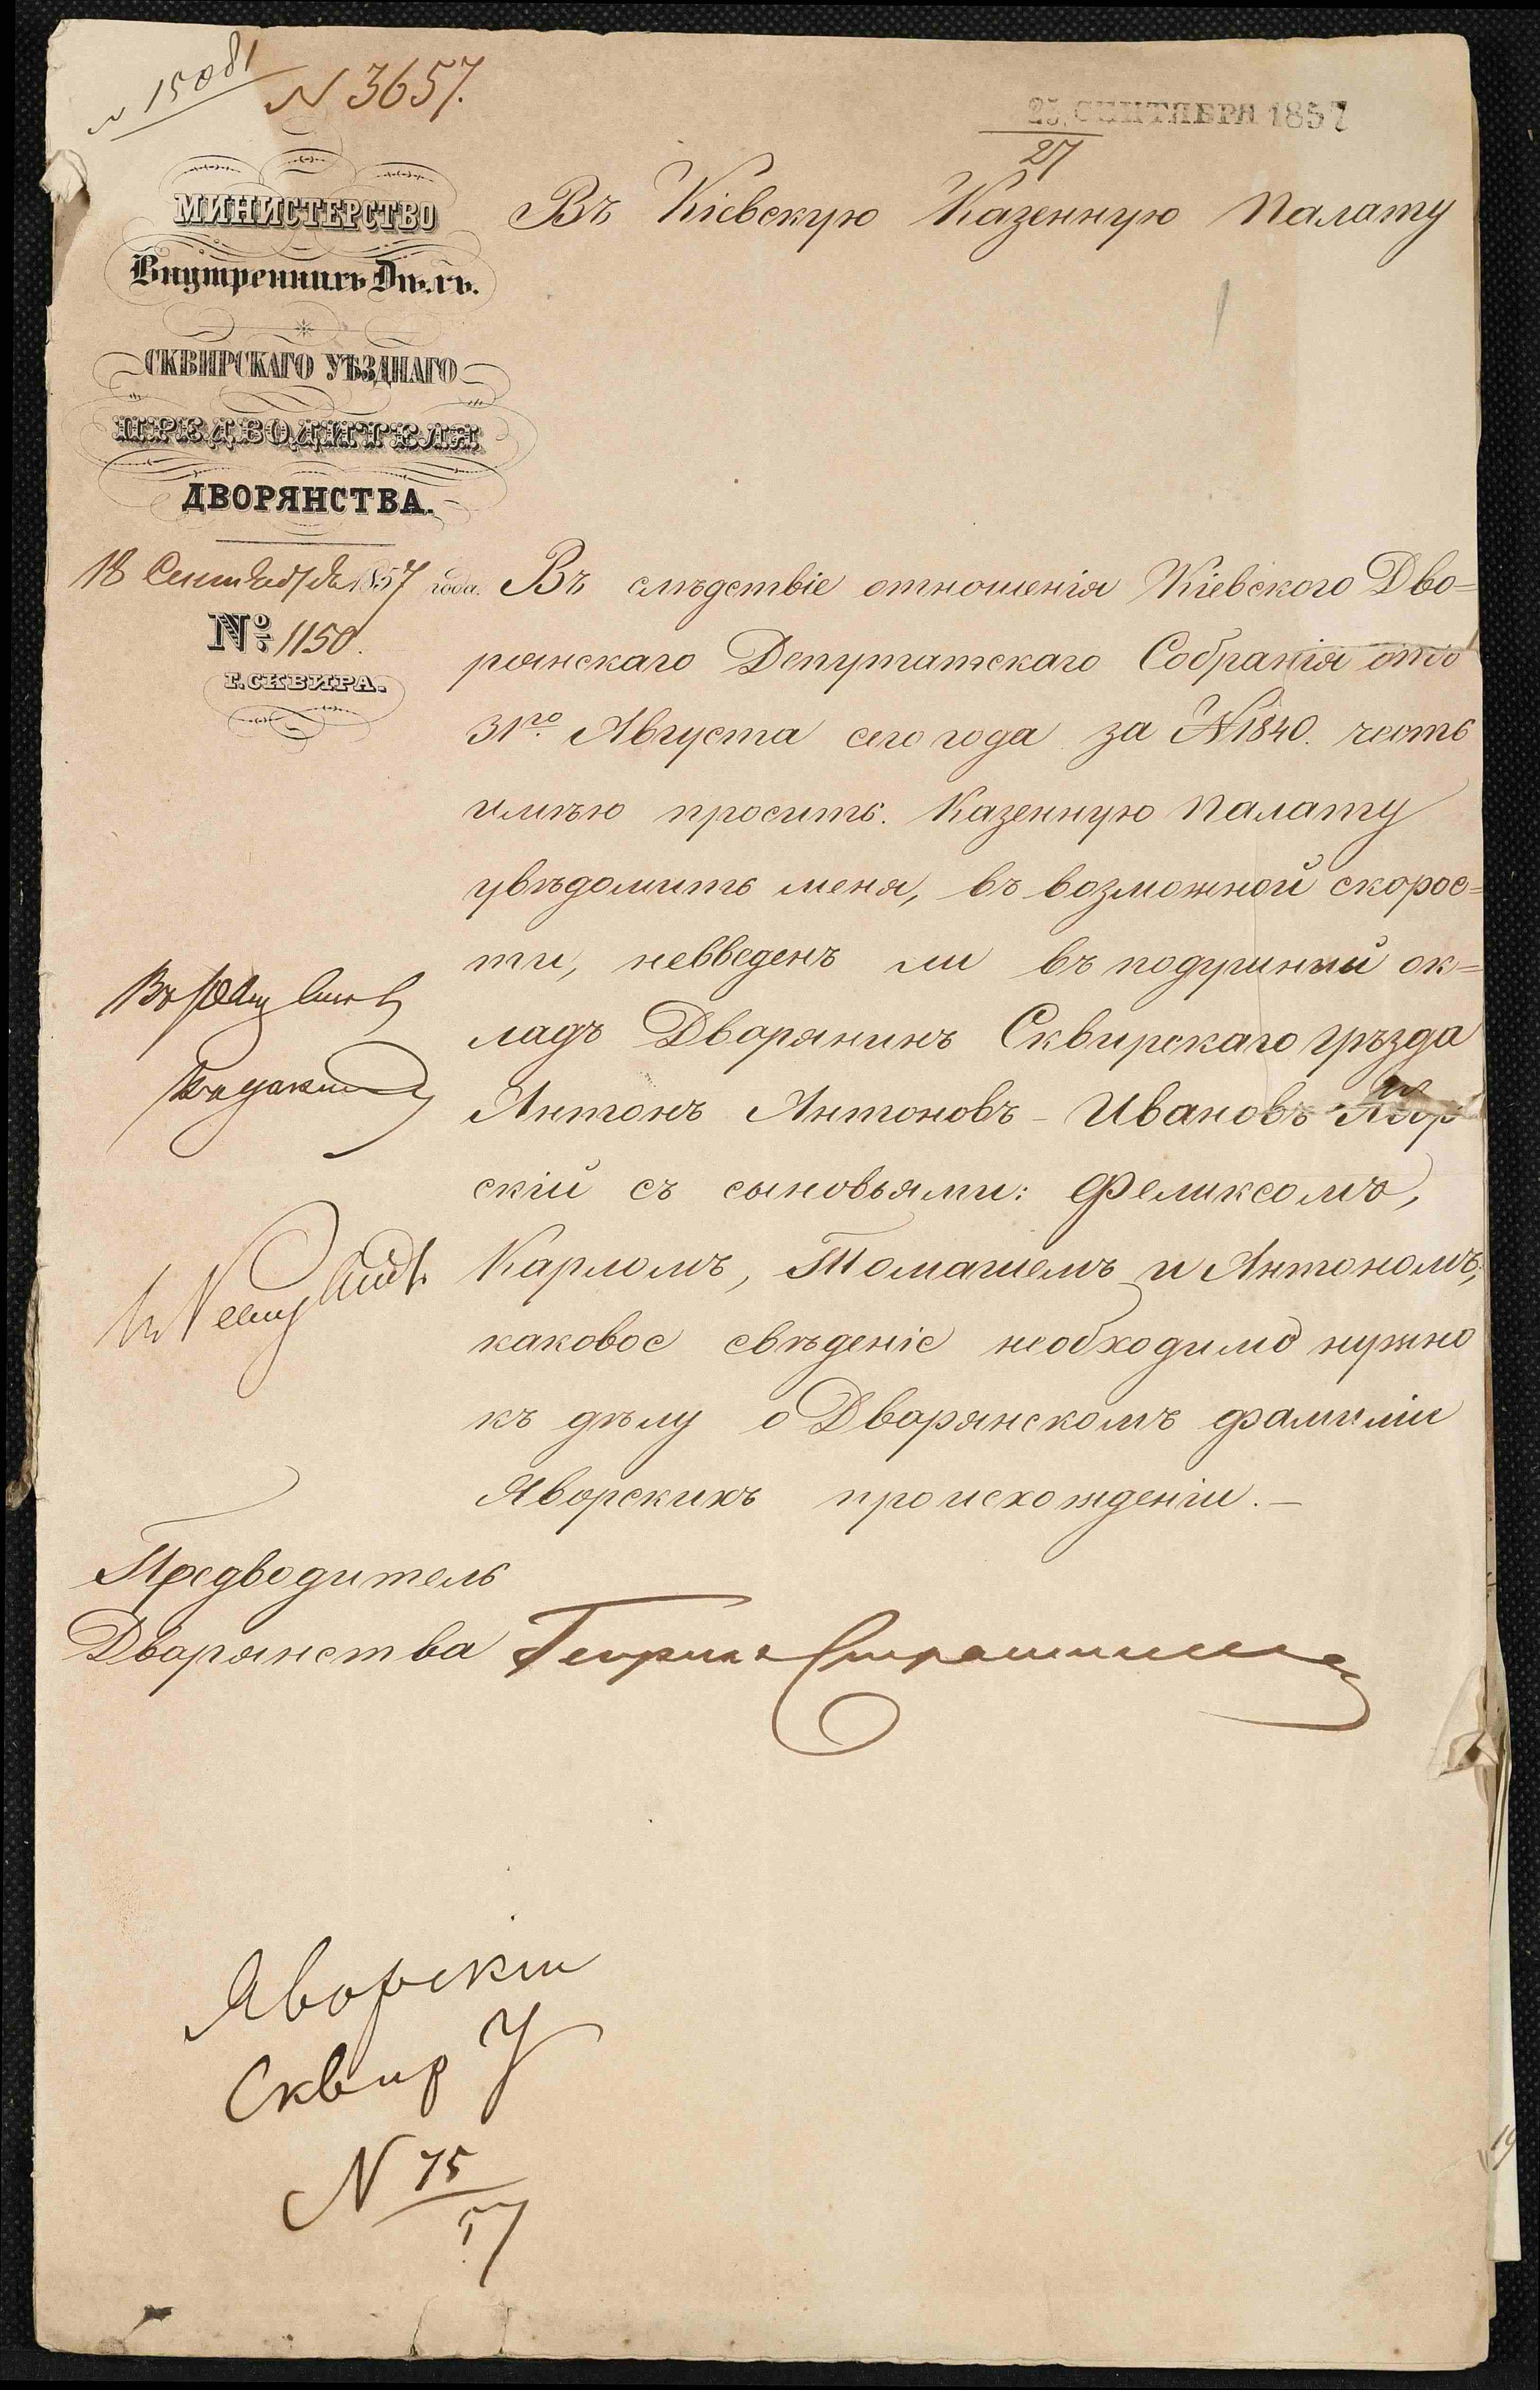 N 15081
N 3657.
25 СЕНТЯБРЯ 1857
27
МИНИСТЕРСТВО
Внутреннихъ Дѣлъ.
СКВИРСКАГО УѢЗДНАГО
ПРЕДВОДИТЕЛЯ
ДВОРЯНСТВА.
18 Сентября 1857 года.
№ 1150.
Г. СКВИРА.
Въ Кіевскую Казенную Палату
Въ слѣдствіе отношенія Кіевского Дво=
рянскаго Депутатскаго Собранія отъ
31го Августа сего года за N 1840. честь
имѣю просить. Казенную Палату
увѣдомить меня, въ возможной скорос=
ти, невведенъ ли въ подушный ок=
ладъ Дворянинъ Сквирскаго уѣзда
Антонъ Антоновъ - Ивановъ Явор
скій съ сыновьями: Феликсомъ,
Карломъ, Томашемъ и Антономъ,
каковое свѣденіе необходимо нужно
къ дѣлу о Дворянскомъ фамиліи
Яворскихъ происхожденіи. —
Предводитель
Дворянства
Яворскіи
Сквир У
N 75
57